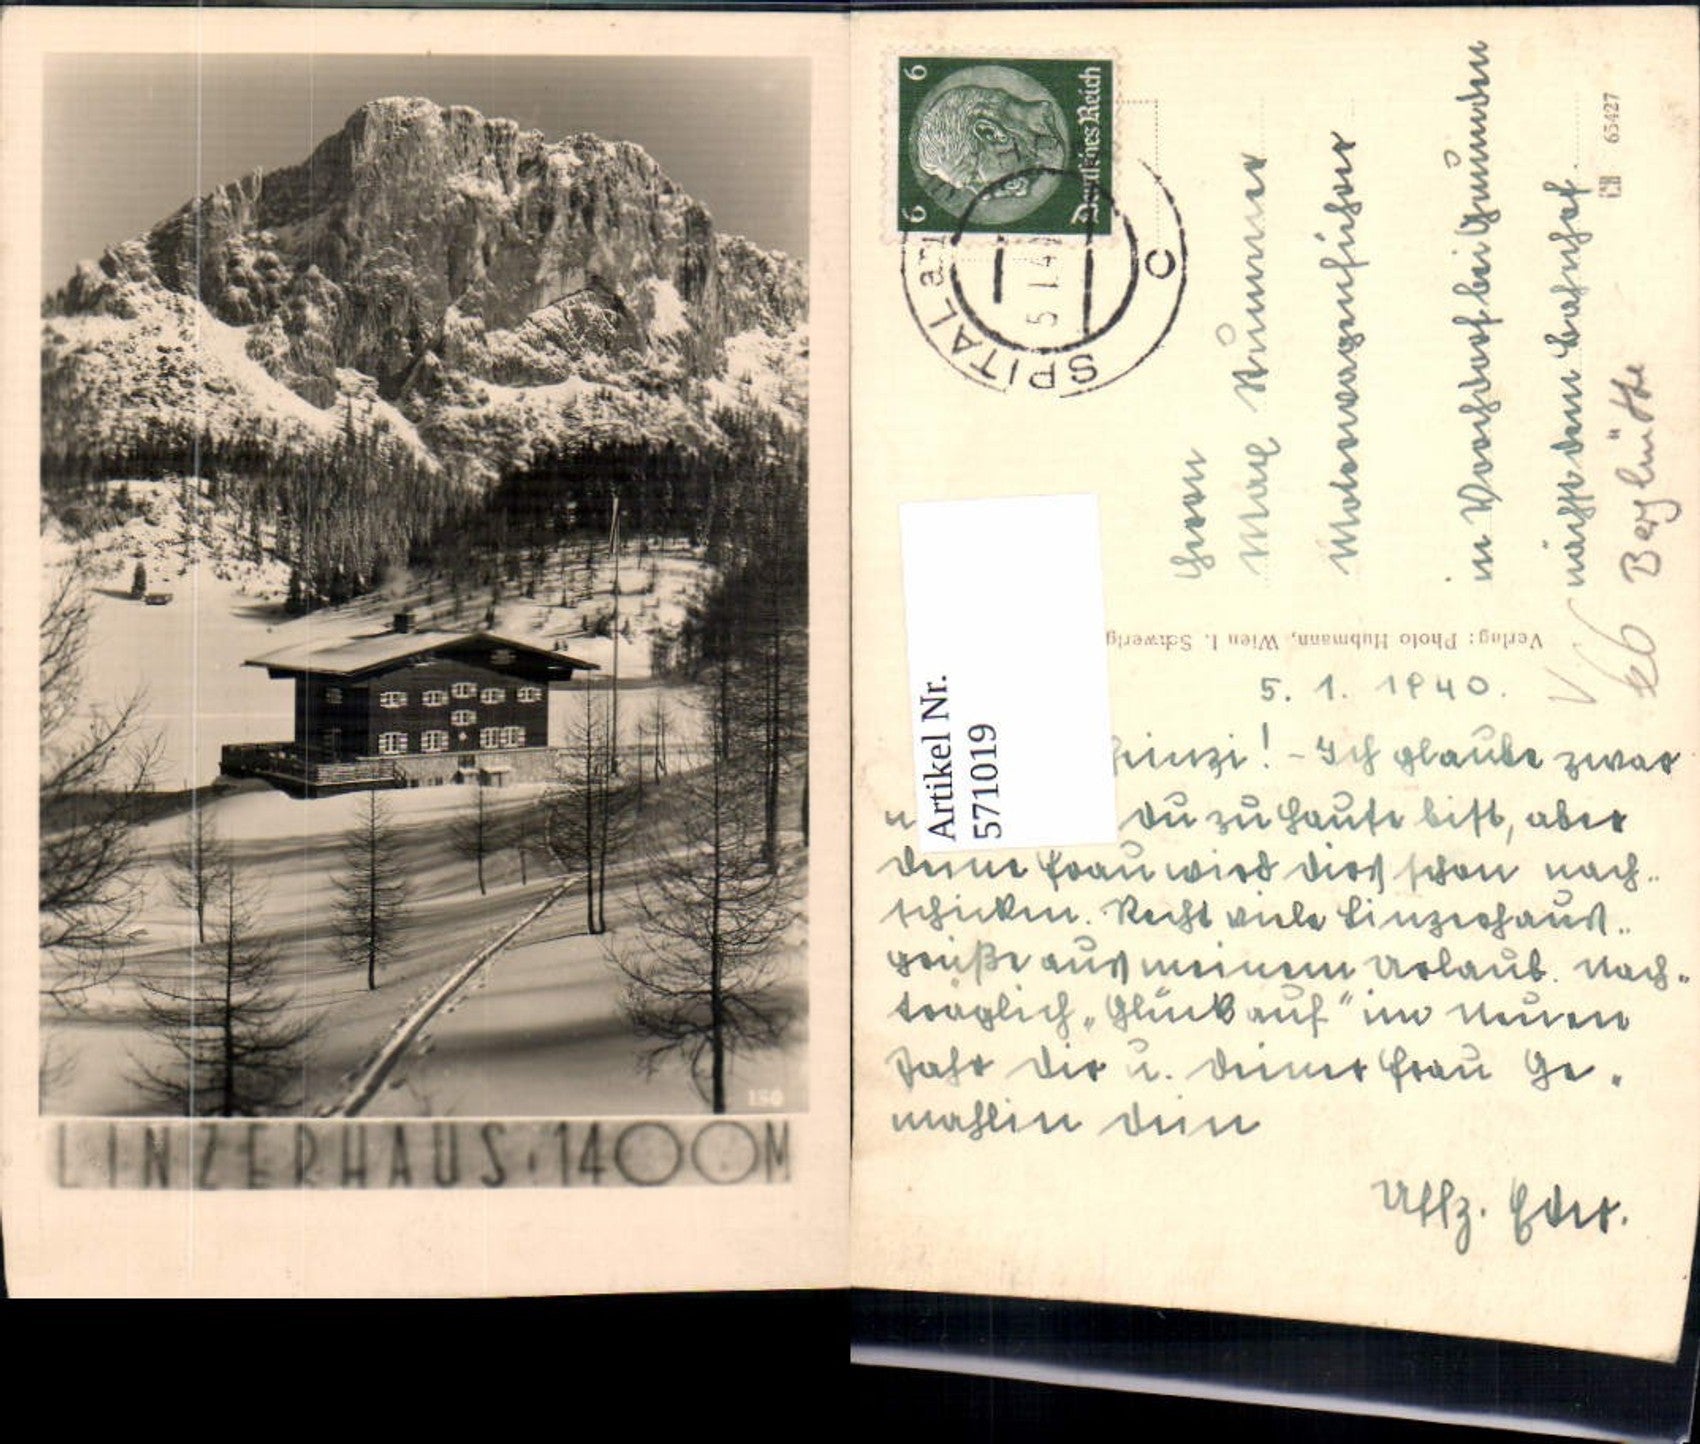 150
LINZERHAUS, 1400M
6 6
Deutsches Reich
SPITAL am
5.1.4
c
Herrn
Max
Motorwagenführer
in Vorchdorf bei Gmunden
nächst dem Bahnhof.
CH 65427
Berghütte
Verlag: Photo Hubmann, Wien I. Schwerig
Artikel Nr.
571019
5. 1. 1940.
heinzi! - Ich glaube zwar
n du zu Hause bist, aber
deine Frau wird dirs schon nach-
schicken. Recht viele Linzerhaus-
grüße aus meinem Urlaub. Nach-
träglich „Glück auf" im Neuen
Jahr dir u. deiner Frau Ge-
mahlin dein
Uffz. Eder.